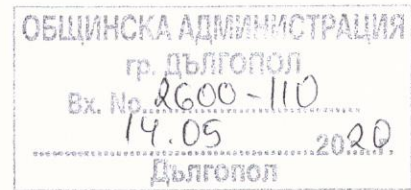 ОБЩИНСКА АДМИНИСТРАЦИЯ
гр. ДЪЛГОПОЛ
Вх. No 2600-110
14.05 2020.
Дългопол